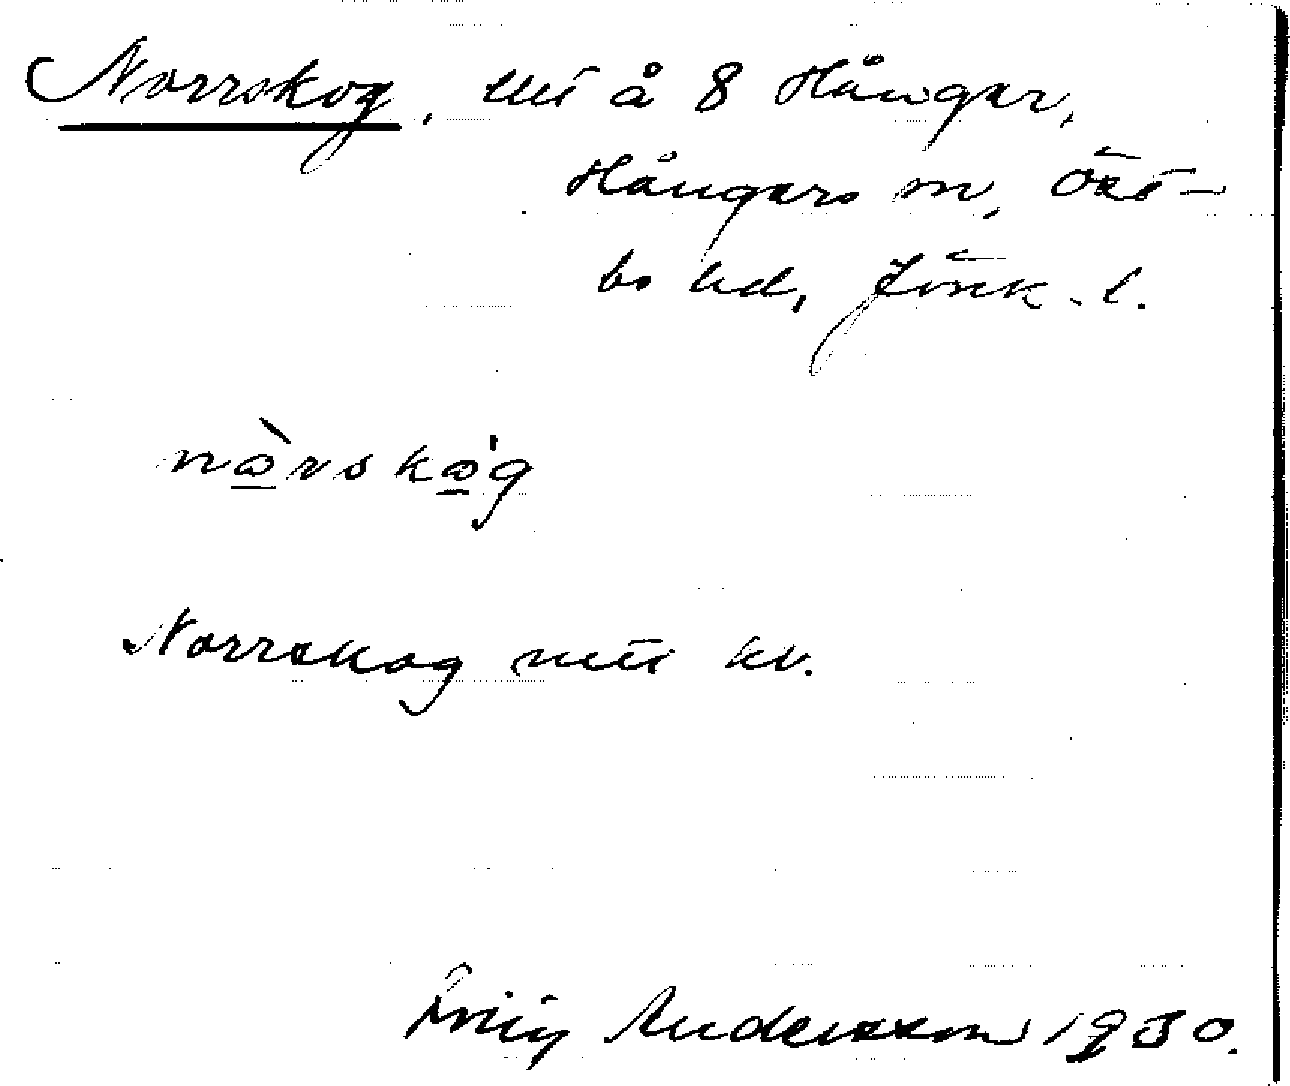 Norrskog, utj å 8 Hångar,
Hångers sn, Öst-
bo hd, Jönk. l.
nòrskóg
Norrskog nlt kv.
Andersson 1930.